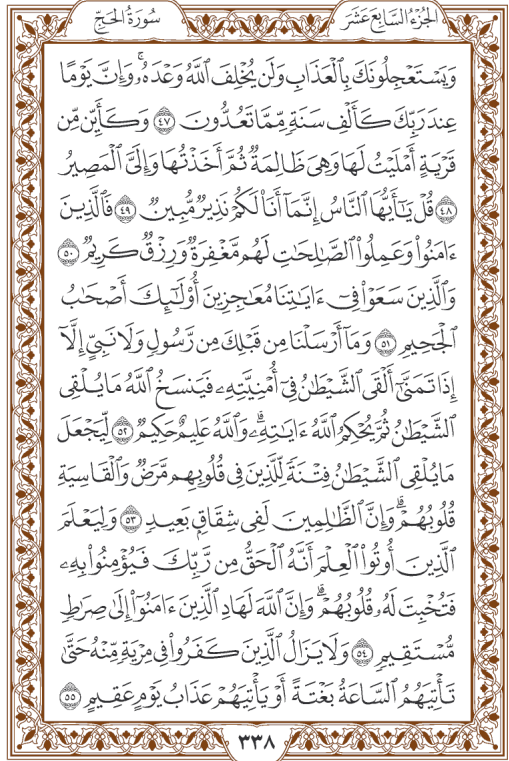 الجُزْءُ السَّابِعَ عَشَرَ
سُورَةُ الحَجِّ
وَيَسْتَعْجِلُونَكَ بِٱلْعَذَابِ وَلَن يُخْلِفَ ٱللَّهُ وَعْدَهُۥۚ وَإِنَّ يَوْمًا
عِندَ رَبِّكَ كَأَلْفِ سَنَةٍ مِّمَّا تَعُدُّونَ ٤٧ وَكَأَيِّن مِّن
قَرْيَةٍ أَمْلَيْتُ لَهَا وَهِيَ ظَالِمَةٌ ثُمَّ أَخَذْتُهَا وَإِلَيَّ ٱلْمَصِيرُ
٤٨ قُلْ يَٰٓأَيُّهَا ٱلنَّاسُ إِنَّمَآ أَنَا۠ لَكُمْ نَذِيرٌ مُّبِينٌ ٤٩ فَٱلَّذِينَ
ءَامَنُوا۟ وَعَمِلُوا۟ ٱلصَّٰلِحَٰتِ لَهُم مَّغْفِرَةٌ وَرِزْقٌ كَرِيمٌ ٥٠
وَٱلَّذِينَ سَعَوْا۟ فِىٓ ءَايَٰتِنَا مُعَٰجِزِينَ أُو۟لَٰٓئِكَ أَصْحَٰبُ
ٱلْجَحِيمِ ٥١ وَمَآ أَرْسَلْنَا مِن قَبْلِكَ مِن رَّسُولٍ وَلَا نَبِىٍّ إِلَّآ
إِذَا تَمَنَّىٰٓ أَلْقَى ٱلشَّيْطَٰنُ فِىٓ أُمْنِيَّتِهِۦ فَيَنسَخُ ٱللَّهُ مَا يُلْقِى
ٱلشَّيْطَٰنُ ثُمَّ يُحْكِمُ ٱللَّهُ ءَايَٰتِهِۦۗ وَٱللَّهُ عَلِيمٌ حَكِيمٌ ٥٢ لِّيَجْعَلَ
مَا يُلْقِى ٱلشَّيْطَٰنُ فِتْنَةً لِّلَّذِينَ فِى قُلُوبِهِم مَّرَضٌ وَٱلْقَاسِيَةِ
قُلُوبُهُمْۗ وَإِنَّ ٱلظَّٰلِمِينَ لَفِى شِقَاقٍۭ بَعِيدٍ ٥٣ وَلِيَعْلَمَ
ٱلَّذِينَ أُوتُوا۟ ٱلْعِلْمَ أَنَّهُ ٱلْحَقُّ مِن رَّبِّكَ فَيُؤْمِنُوا۟ بِهِۦ
فَتُخْبِتَ لَهُۥ قُلُوبُهُمْۗ وَإِنَّ ٱللَّهَ لَهَادِ ٱلَّذِينَ ءَامَنُوٓا۟ إِلَىٰ صِرَٰطٍ
مُّسْتَقِيمٍ ٥٤ وَلَا يَزَالُ ٱلَّذِينَ كَفَرُوا۟ فِى مِرْيَةٍ مِّنْهُ حَتَّىٰ
تَأْتِيَهُمُ ٱلسَّاعَةُ بَغْتَةً أَوْ يَأْتِيَهُمْ عَذَابُ يَوْمٍ عَقِيمٍ ٥٥
٣٣٨